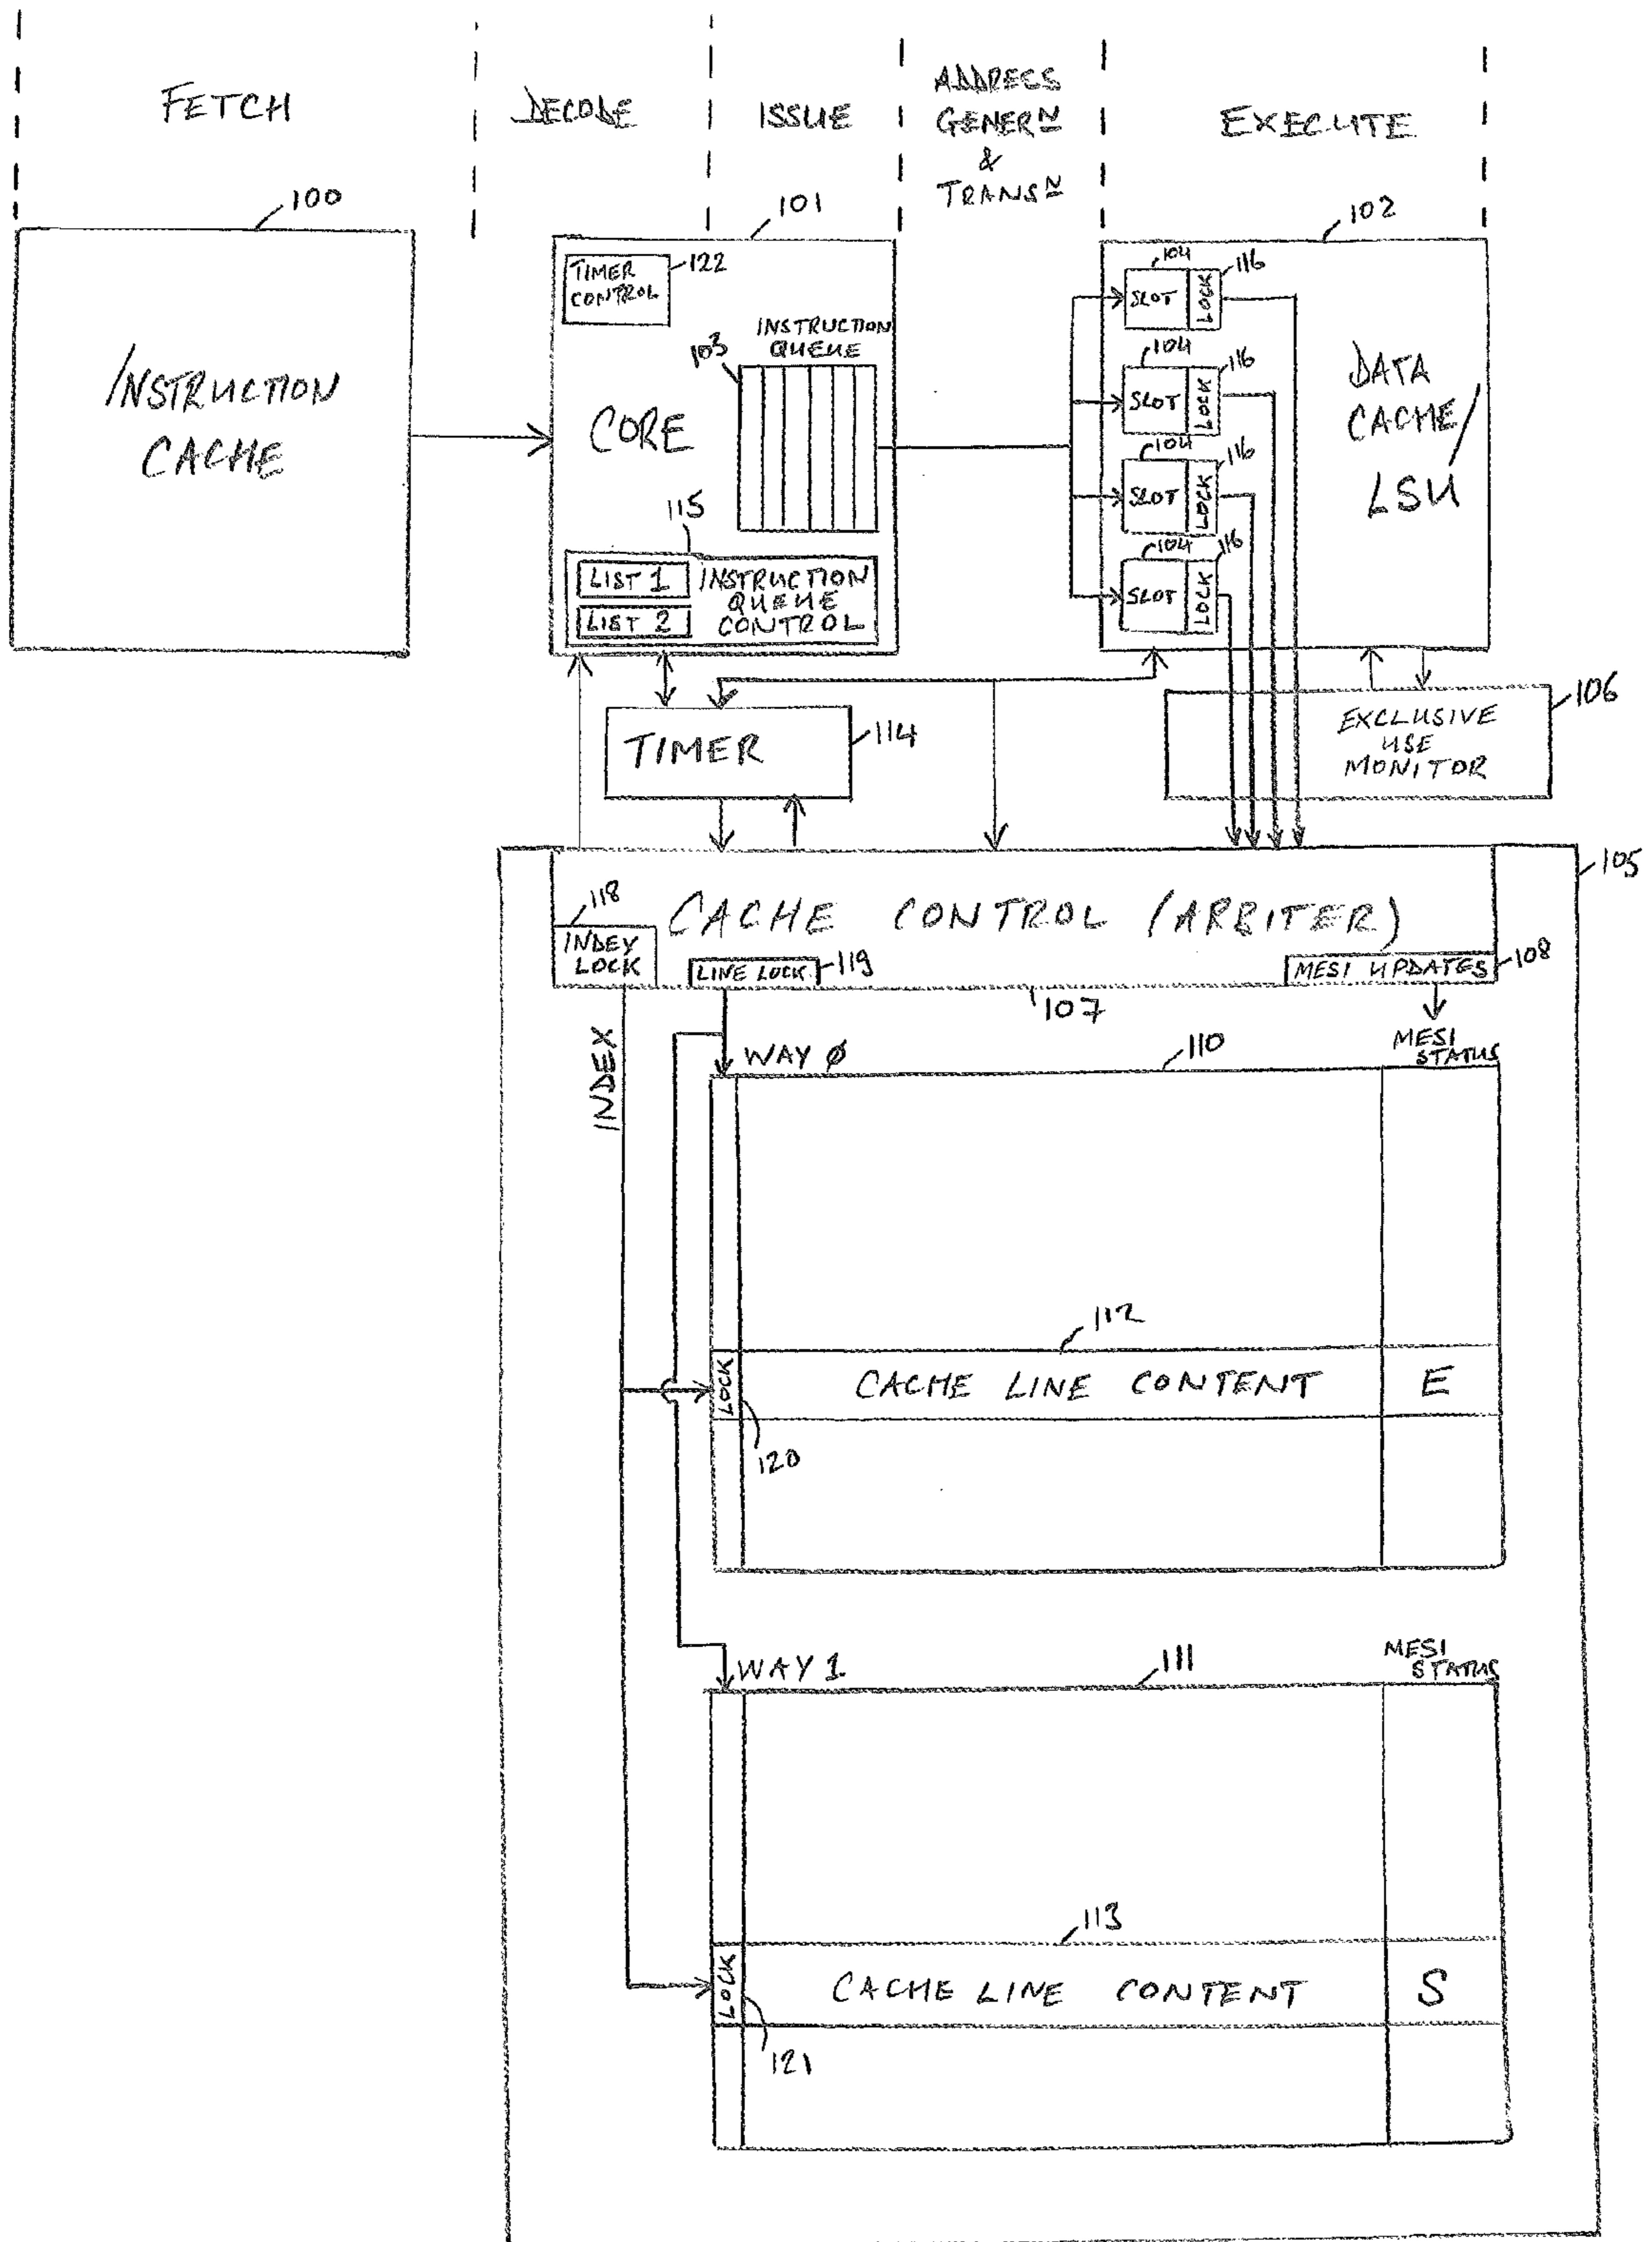 FETCH
DECODE
ISSUE
ADDRESS
GENERN
&
TRANSN
EXECUTE
100
101
102
INSTRUCTION
CACHE
TIMER
CONTROL
122
INSTRUCTION
QUEUE
103
CORE
115
LIST 1
LIST 2
INSTRUCTION
QUEUE
CONTROL
104
116
SLOT
LOCK
104
116
SLOT
LOCK
104
116
SLOT
LOCK
104
116
SLOT
LOCK
DATA
CACHE/
LSU
TIMER
114
EXCLUSIVE
USE
MONITOR
106
105
CACHE CONTROL (ARBITER)
118
INDEX
LOCK
LINE LOCK
119
MESI UPDATES
108
107
INDEX
WAY 0
110
MESI
STATUS
112
LOCK
CACHE LINE CONTENT
E
120
WAY 1
111
MESI
STATUS
113
LOCK
CACHE LINE CONTENT
S
121